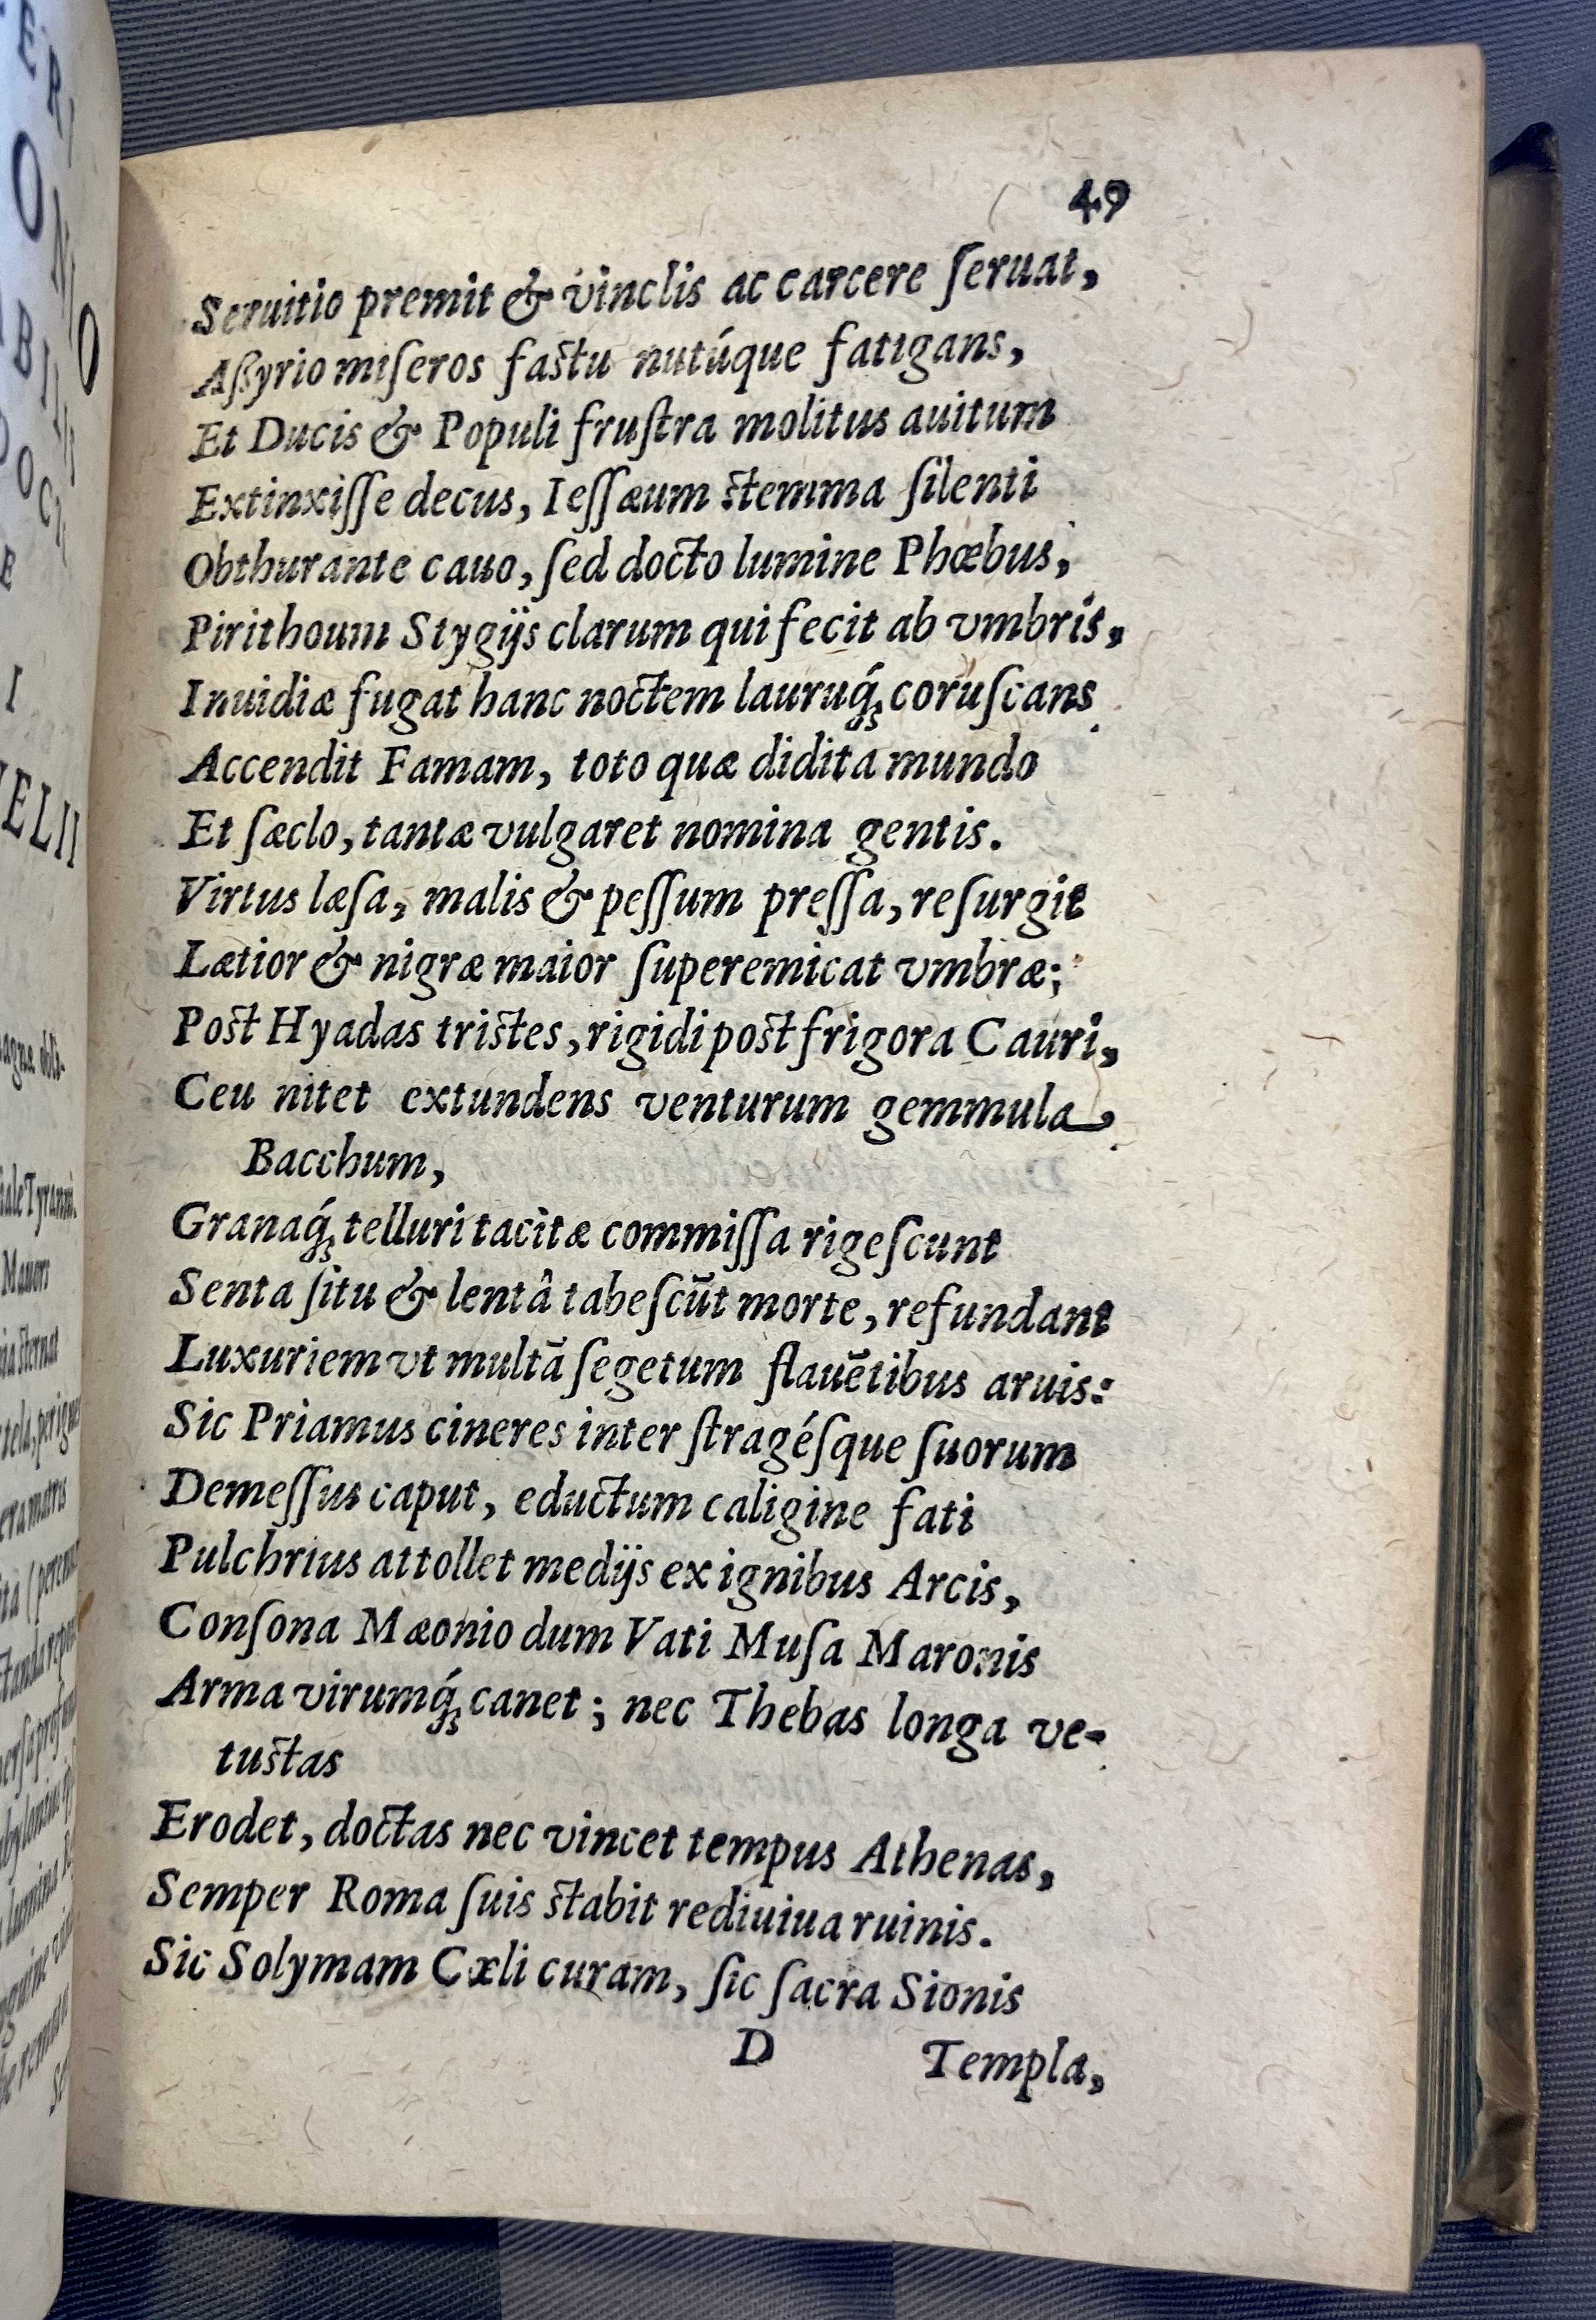 49
Seruitio premit & vinclis ac carcere ſeruat,
Aßyrio miſeros faſtu nutúque fatigans,
Et Ducis & Populi fruſtra molitus auitum
Extinxiſſe decus, Ieſſæum ſtemma ſilenti
Obthurante cauo, ſed docto lumine Phœbus,
Pirithoum Stygijs clarum qui fecit ab vmbris,
Inuidiæ fugat hanc noctem lauruq́ꝫ coruſcans
Accendit Famam, toto quæ didita mundo
Et ſæclo, tantæ vulgaret nomina gentis.
Virtus læſa, malis & peſſum preſſa, reſurgit
Lætior & nigræ maior ſuperemicat vmbræ;
Poſt Hyadas triſtes, rigidi poſt frigora Cauri,
Ceu nitet extundens venturum gemmula
Bacchum,
Granaq́ꝫ telluri tacitæ commiſſa rigeſcunt
Senta ſitu & lentâ tabeſcūt morte, refundant
Luxuriem vt multā ſegetum flauētibus aruis:
Sic Priamus cineres inter ſtragéſque ſuorum
Demeſſus caput, eductum caligine fati
Pulchrius attollet medijs ex ignibus Arcis,
Conſona Mæonio dum Vati Muſa Maronis
Arma virumq́ꝫ canet; nec Thebas longa ve-
tuſtas
Erodet, doctas nec vincet tempus Athenas,
Semper Roma ſuis ſtabit rediuiua ruinis.
Sic Solymam Cæli curam, ſic ſacra Sionis
D Templa,